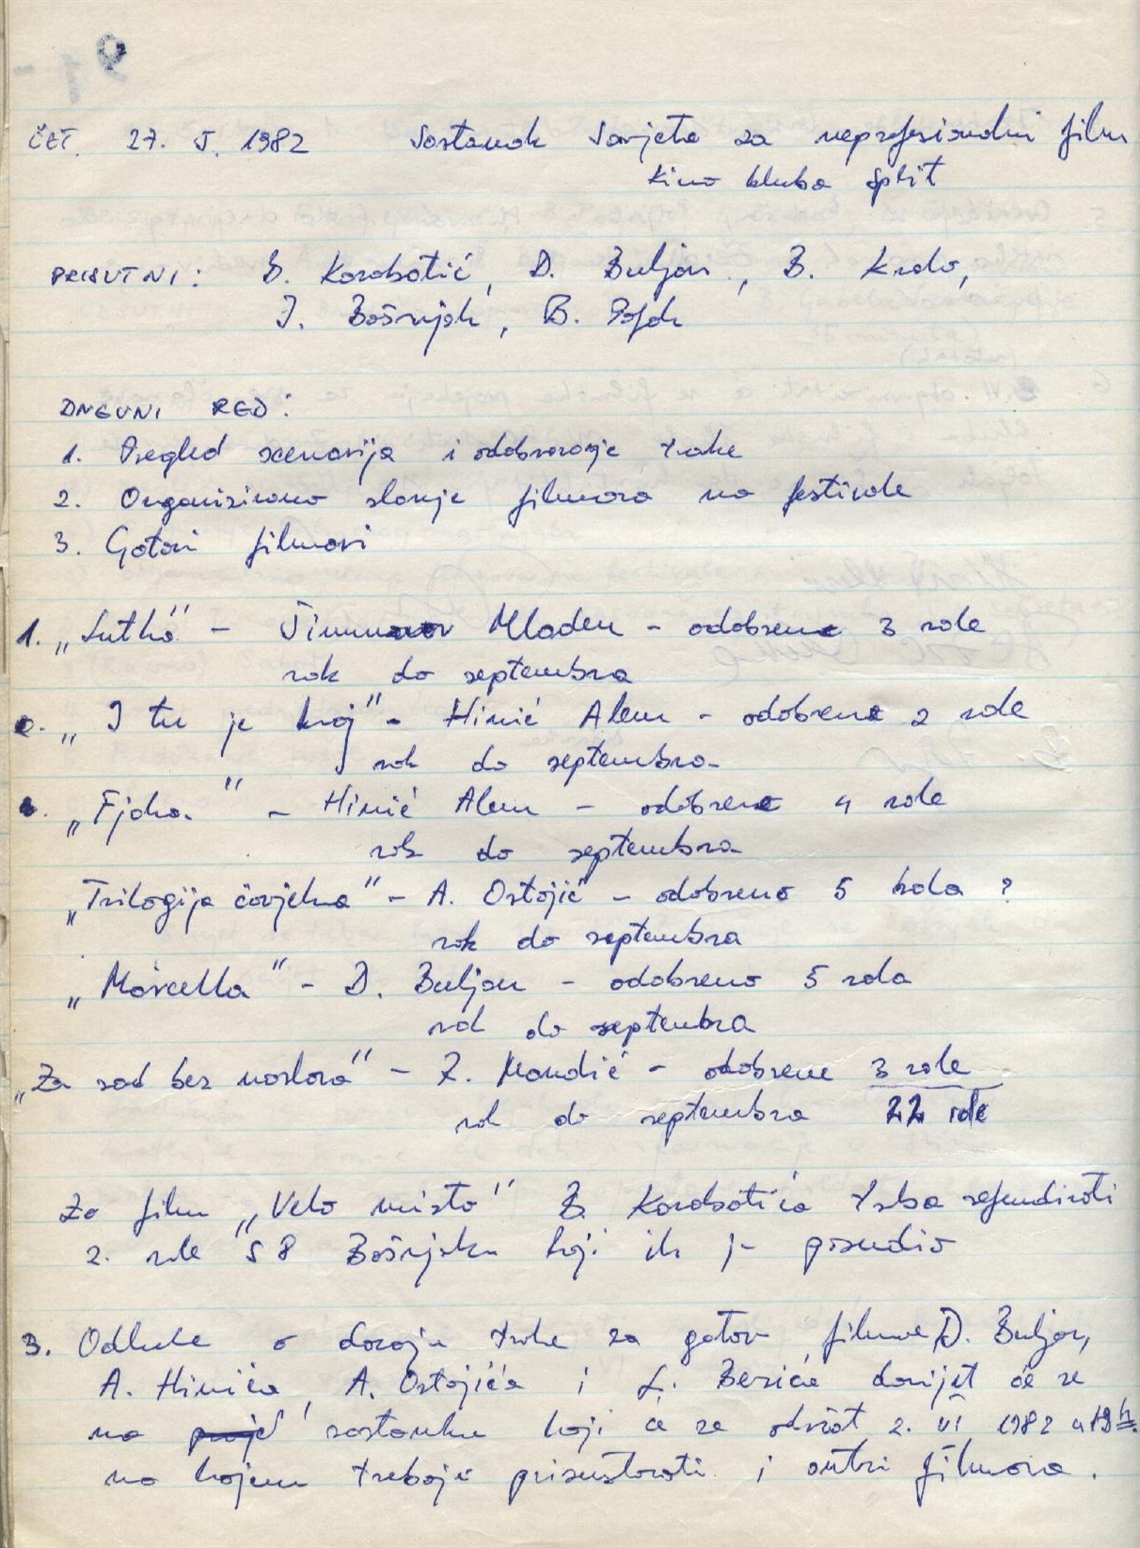 91-
ČET. 27. V. 1982 Sastanak Savjeta za neprofesionalni film
Kino kluba Split
PRISUTNI: B. Karabatić, D. Buljan, B. Krolo,
I. Bošnjak, B.
DNEVNI RED:
1. Pregled scenarija i odobravanje trake
2. Organizirano slanje filmova na festivale
3. Gotovi filmovi
1. „Lutka" - Mladen - odobrene 3 role
rok do septembra
„I tu je kraj" - Hinić Alem - odobrene 2 role
rok do septembra
„Fjaka" - Hinić Alem - odobrene 4 role
rok do septembra
„Trilogija čovjeka" - A. Ostojić - odobreno 5 rola ?
rok do septembra
„Marcella" - D. Buljan - odobreno 5 rola
rok do septembra
„Za sad bez naslova" - Z. Mandić - odobrene 3 role
rok do septembra 22 role
Za film „Velo misto" B. Karabatića treba refundirati
2. role S8 Bošnjaku koji ih je posudio
3. Odluke o davanju trake za gotove filmove D. Buljan,
A. Hinića, A. Ostojića i L. Berića donijet će se
na sastanku koji će se održat 2. VI 1982 u 19h.
na kojem trebaju prisustvovati i autori filmova.